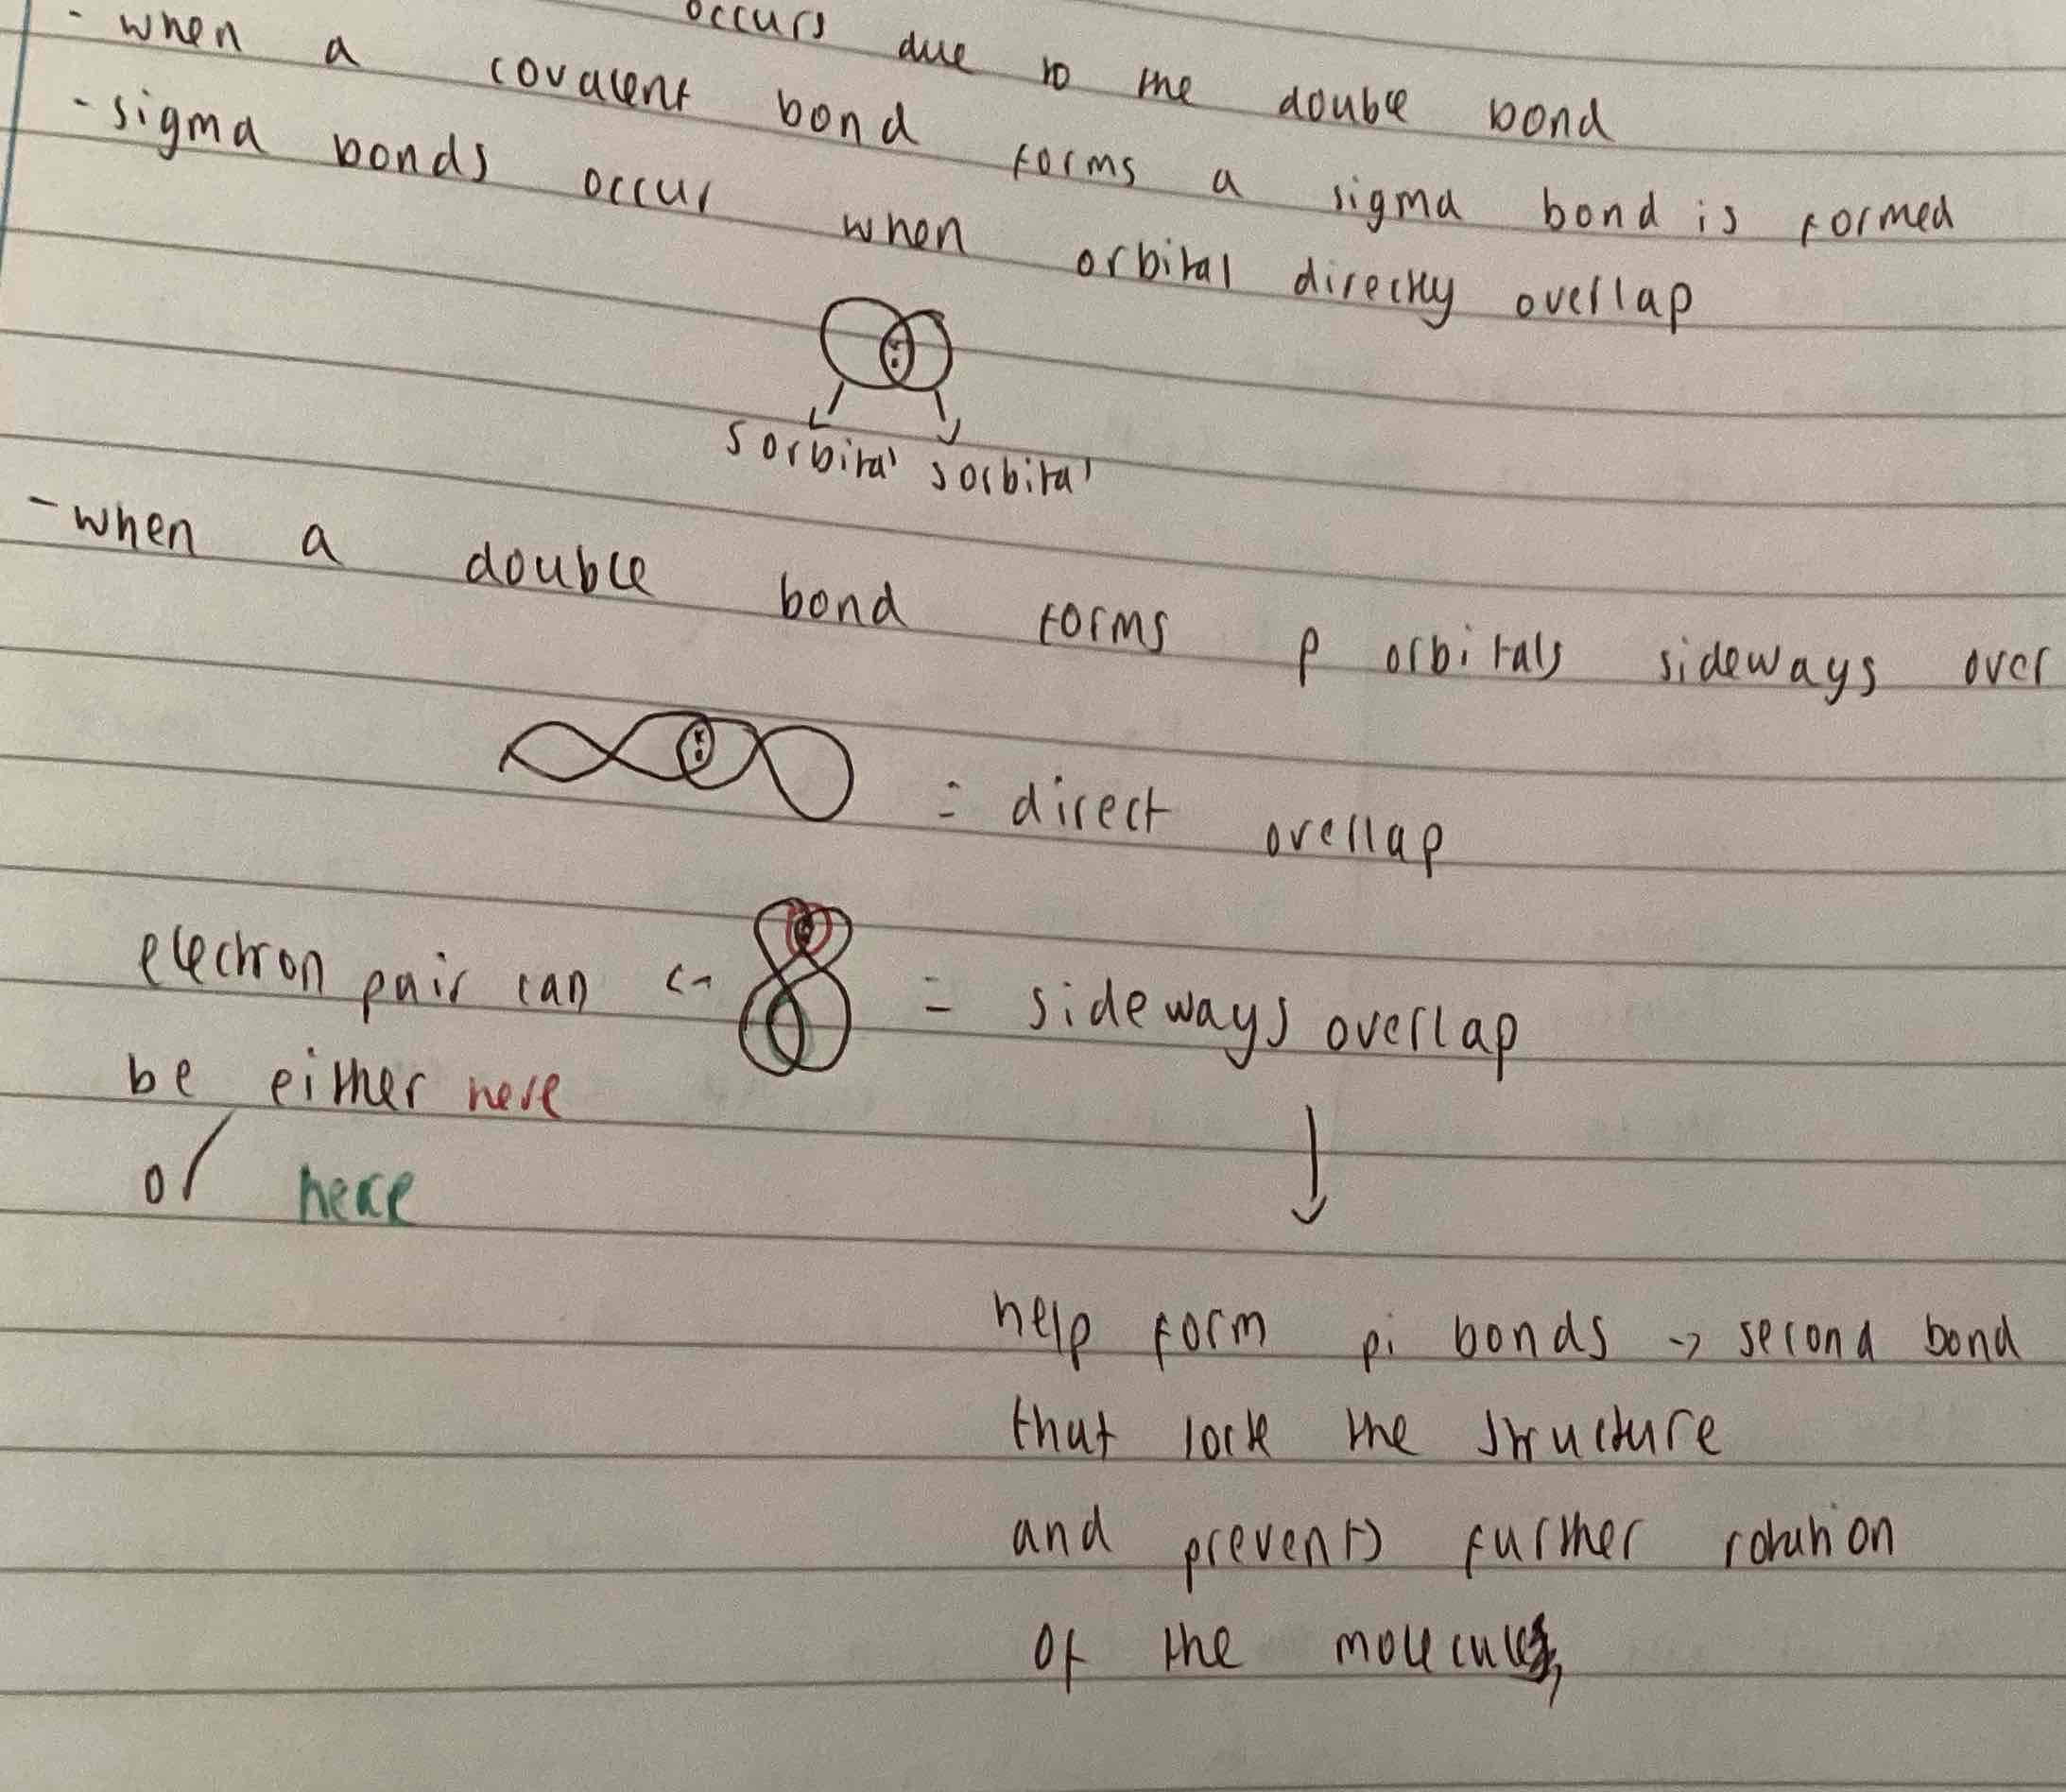 occurs due to the double bond
- when a covalent bond forms a sigma bond is formed
- sigma bonds occur when orbital directly overlap
s orbital s orbital
- when a double bond forms p orbitals sideways over
= direct overlap
electron pair can <- = sideways overlap
be either here
or here
help form pi bonds -> second bond
that lock the structure
and prevents further rotation
of the molecules,